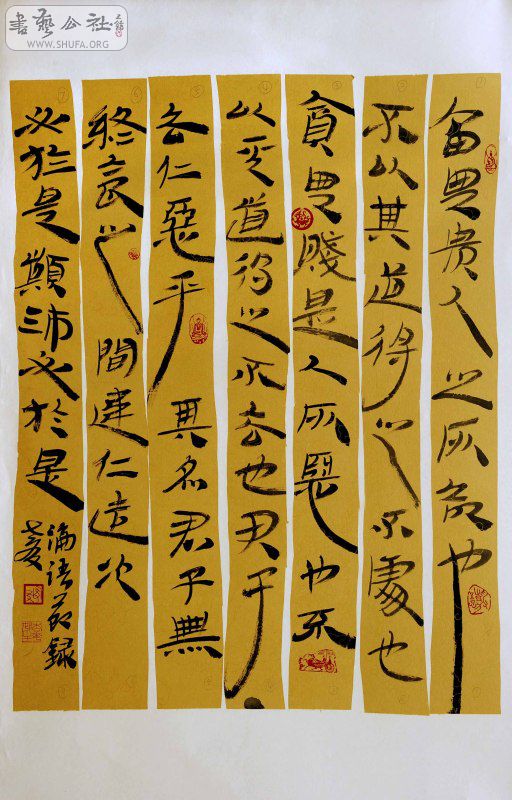 書藝公社
WWW.SHUFA.ORG
富與貴人之所欲也
不以其道得之不處也
貧與賤是人所惡也不
以其道得之不去也君子
去仁惡乎名君子無
終食之間違仁造次
必於是顛沛必於是
論語節錄